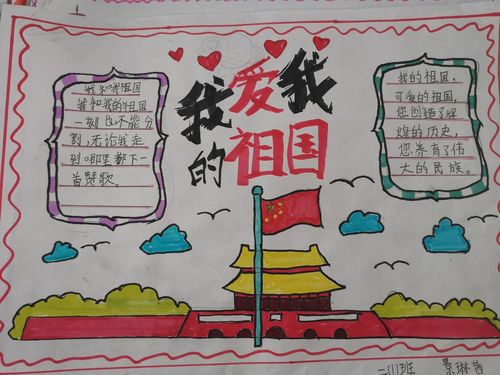 我爱我
的祖国
我和我的祖国
我和我的祖国
一刻也不能分
割,无论我走
到哪里都下一
首赞歌。
我的祖国,
可爱的祖国,
您创造了辉
煌的历史,
您养育了伟
大的民族。
二(1)班 景琳茜